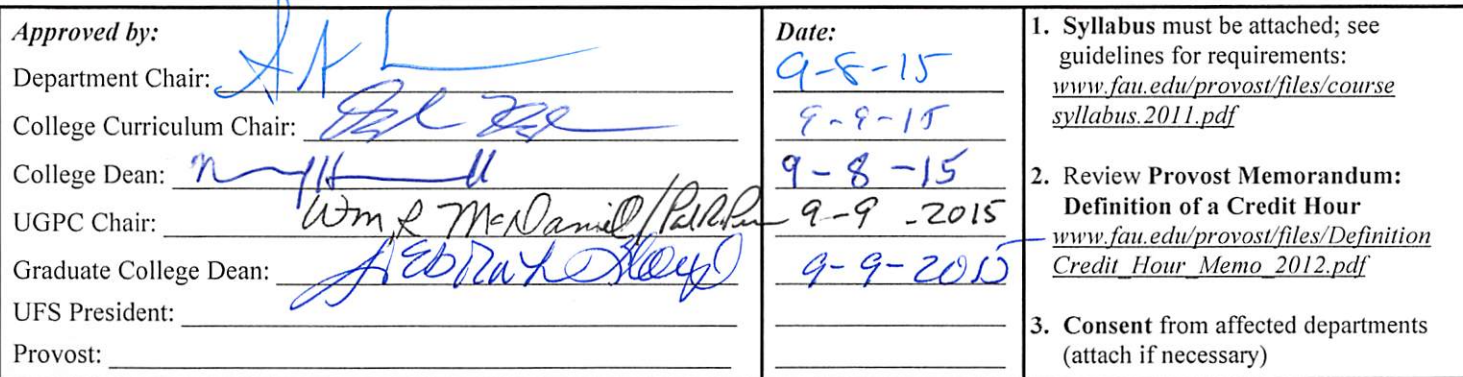 Approved by:
Department Chair:
College Curriculum Chair:
College Dean:
UGPC Chair: Wm R McDaniel/
Graduate College Dean: Deborah Floyd
UFS President:
Provost:
Date:
9-8-15
9-9-15
9-8-15
9-9-2015
9-9-2015
1. Syllabus must be attached; see
guidelines for requirements:
www.fau.edu/provost/files/course
syllabus.2011.pdf
2. Review Provost Memorandum:
Definition of a Credit Hour
www.fau.edu/provost/files/Definition
Credit_Hour_Memo_2012.pdf
3. Consent from affected departments
(attach if necessary)